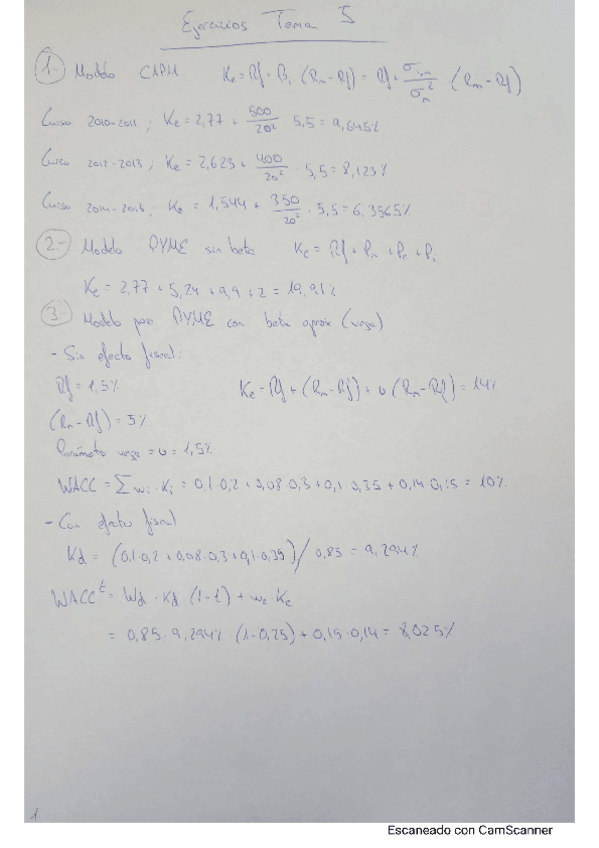 Ejercicios Tema 5
1- Modelo CAPM Ke = Rf + βi (Rm - Rf) = Rf + σi,m / σm² (Rm - Rf)
Curso 2010-2011; Ke = 2,77 + 500/20² · 5,5 = 9,645%
Curso 2012-2013; Ke = 2,623 + 400/20² · 5,5 = 8,123%
Curso ; Ke = 1,544 + 350/20² · 5,5 = 6,3565%
2- Modelo PYME sin beta Ke = Rf + Pm + Pe + Pi
Ke = 2,77 + 5,24 + 9,9 + 2 = 19,91%
3- Modelo para PYME con beta aprox (vega)
- Sin efecto fiscal:
Rf = 1,5% Ke = Rf + (Rm - Rf) + υ (Rm - Rf) = 14%
(Rm - Rf) = 5%
Parámetro vega = υ = 1,5%
WACC = Σ wi · Ki = 0,1·0,2 + 0,08·0,3 + 0,1·0,35 + 0,14·0,15 = 10%
- Con efecto fiscal
Kd = (0,1·0,2 + 0,08·0,3 + 0,1·0,35) / 0,85 = 9,294%
WACCt = Wd · Kd (1-t) + we · Ke
= 0,85 · 9,294% (1-0,25) + 0,15 · 0,14 = 8,025%
1
Escaneado con CamScanner